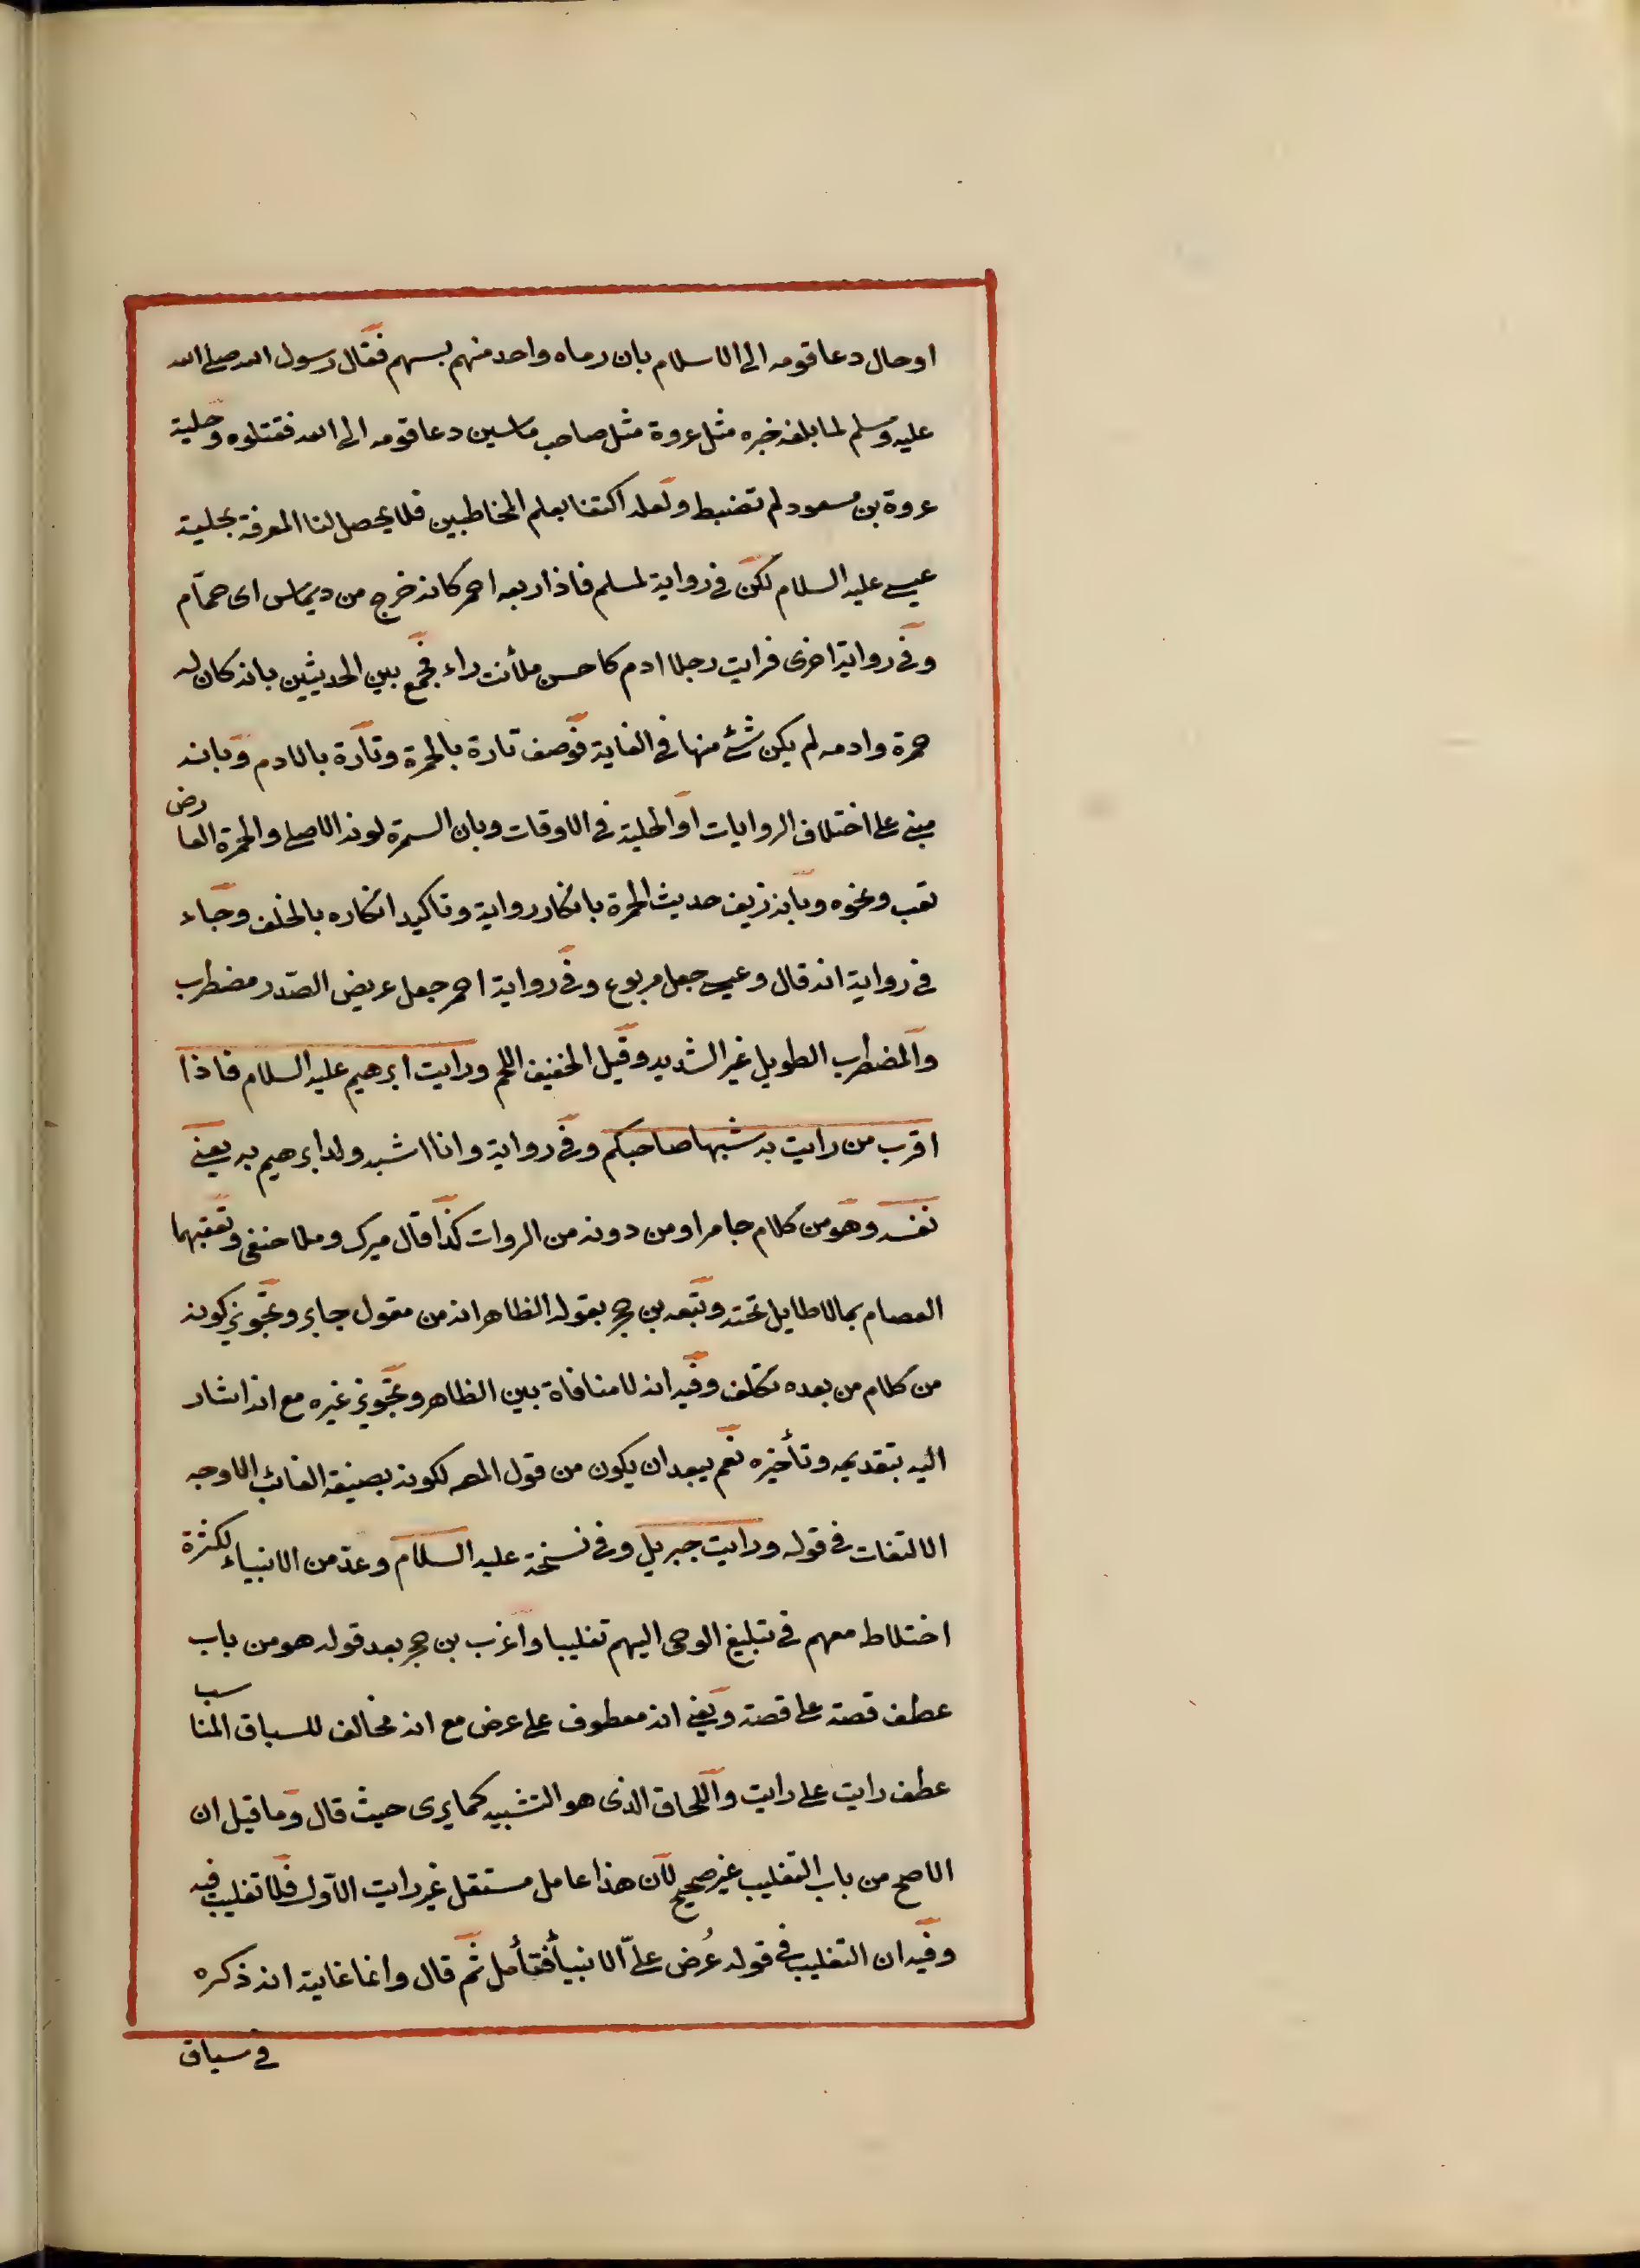 او حال دعا قومه الى الاسلام بان رماه واحد منهم بسهم فقال رسول الله صلى الله
عليه وسلم لما بلغه خبره مثل عروة مثل صاحب ياسين دعا قومه الى الله فقتلوه وحلية
عروة بن مسعود لم تضبط ولعله اكتفا بعلم المخاطبين فلا يحصل لنا المعرفة بحلية
عيسى عليه السلام لكن في رواية لمسلم فاذا ربعه احمر كانه خرج من ديماس اى حمّام
وفي رواية اخرى فرايت رجلا ادم كاحسن ما أنت راء فجمع بين الحديثين بانه كان له
حمرة وادمه لم يكن شئ منها في الغاية فوصف تارة بالحمرة وتارة بالادم وبانه
مبنى على اختلاف الروايات او الحلية في الاوقات وبان السمرة لونه الاصلي والحمرة العارض
تعب ونحوه وبانه زيف حديث الحمرة بانكار رواية وتاكيد انكاره بالحلف وجاء
في رواية انه قال وعيسى جعل مربوع وفي رواية احمر جعل عريض الصّدر مضطرب
والمضطرب الطويل غير الشديد وقيل الخفيف اللحم ورايت ابرهيم عليه السلام فاذا
اقرب من رايت به شبها صاحبكم وفي رواية وانا اشبه ولد ابرهيم به يعني
نفسه وهو من كلام جابر او من دونه من الروات كذا قال ميرك وملا حنفى وتعقبهما
العصام بما لا طايل تحته وتبعه بن حجر بقوله الظاهر انه من مقول جابر وتجويز كونه
من كلام من بعده تكلف وفيه انه لا منافاة بين الظاهر وتجويز غيره مع انه اشار
اليه بتقديمه وتأخيره نعم يبعد ان يكون من قول المصـ لكونه بصيغة الغائب الا وجه
الالتفات في قوله ورايت جبريل وفي نسخة عليه السلام وعدّ من الانبياء لكثرة
اختلاط معهم في تبليغ الوحى اليهم تغليبا واغرب بن حجر بعد قوله هو من باب
عطف قصة على قصة ويعني انه معطوف على عرض مع انه مخالف للسياق المناسب
عطف رايت على رايت واللحاق الذى هو التشبيه كما يرى حيث قال وما قيل ان
الاصح من باب التغليب غير صحيح لان هذا عامل مستقل غير رايت الاول فلا تغليب فيه
وفيه ان التغليب في قوله عُرض علىّ الانبيأ فتأمل ثم قال وانما غاية انه ذكره
في سياق